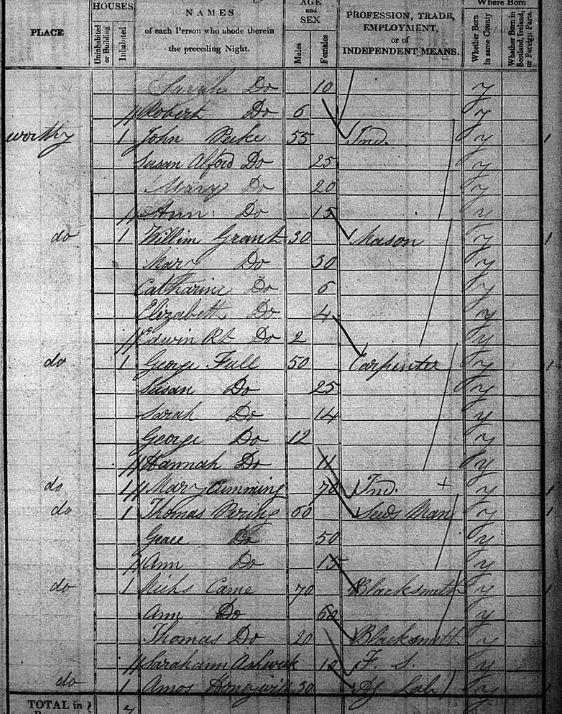 PLACE HOUSES Uninhabited or Building Inhabited NAMES of each Person who abode therein the preceding Night. AGE and SEX Males Females PROFESSION, TRADE, EMPLOYMENT, or of INDEPENDENT MEANS. Where Born Whether Born in same County Whether Born in Scotland, Ireland, or Foreign Parts.
Sarah Do 10 y
Robert Do 6 y
worthy 1 John Peeke 55 Ind. y 1
Susan Alford Do 25 y
Mary Do 20 y
Ann Do 15 y
do 1 Willim Grant 30 Mason y 1
Mary Do 30 y
Catharine Do 6 y
Elizabeth Do 4 y
Edwin Rt Do 2 y
do 1 George Full 50 Carpenter y 1
Susan Do 25 y
Sarah Do 14 y
George Do 12 y
Hannah Do 11 y
do 1 Mary Cumming 70 Ind. + y 1
do 1 Thomas 60 Man y 1
Grace Do 50 y
Ann Do 15 y
do 1 Came 70 Blacksmith y 1
Ann Do 60 y
Thomas Do 20 Blacksmith y
Sarahann 10 F. S. y
do 1 Amos 30 Lab y 1
TOTAL in